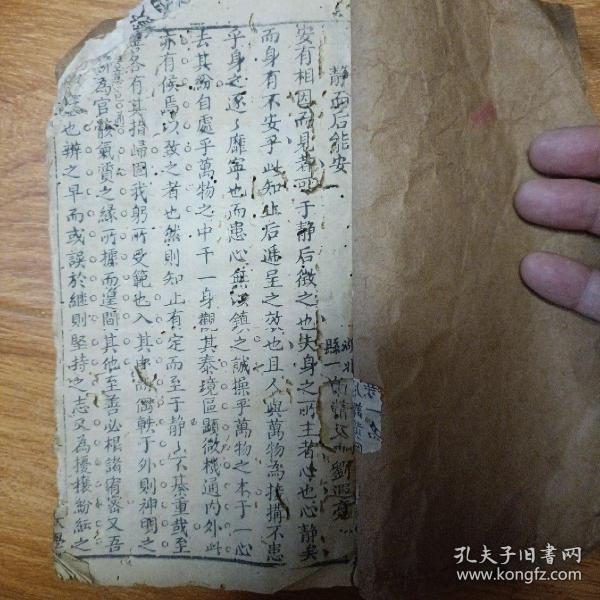 静而后能安
縣一 劉遐亮
安有相因而見者可于静后徵之也夫身之所主者心也心静矣
而身有不安乎此知止后遞呈之效也且人與萬物為接搆不患
乎身之逐〻靡寧也而患心無以鎮之誠操乎萬物之本于一心
去其紛自處乎萬物之中干一身觀其泰境區顯微機通内外此
亦有候焉以致之者也然則知止有定而至于静不綦重哉至
善各有其指歸固我躬所受範也入其中 于外則神明之
為官骸氣質之緣所擾而遑間其他至善必根諸宥密又吾
也辨之早而或誤於繼則堅持之志又為擾攘紛紜之
大學
孔夫子旧书网
www.kongfz.com